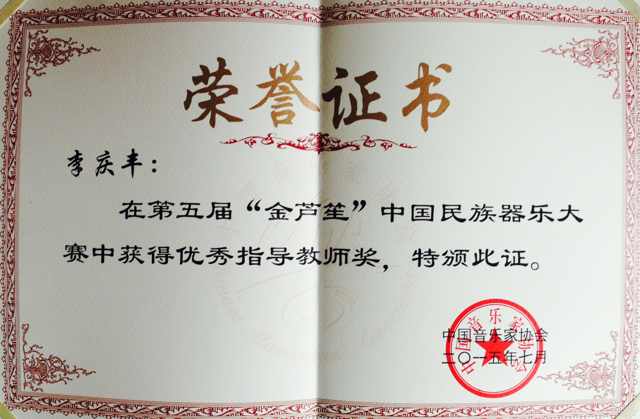 荣誉证书
李庆丰：
在第五届“金芦笙”中国民族器乐大
赛中获得优秀指导教师奖，特颁此证。
中国音乐家协会
二〇一五年七月